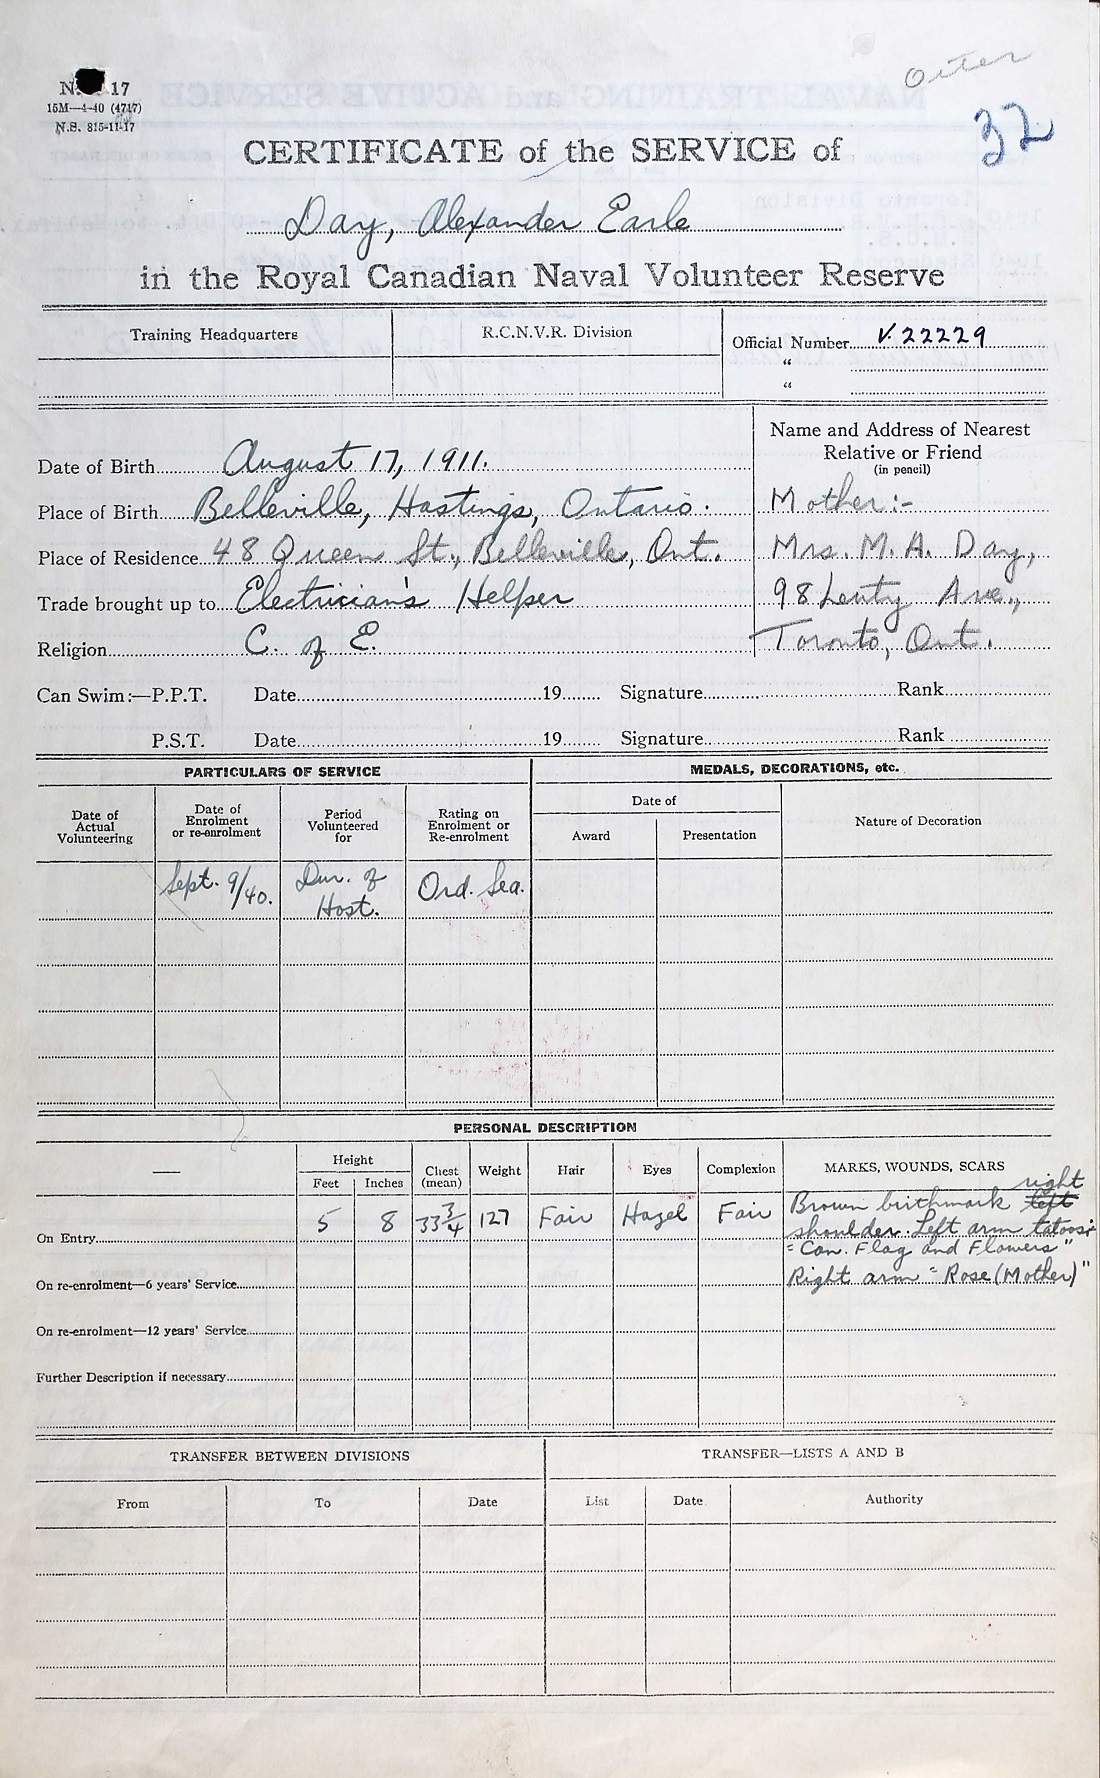 Otter
32
N. 17
15M—4-40 (4717)
N.S. 815-11-17
CERTIFICATE of the SERVICE of
Day, Alexander Earle
in the Royal Canadian Naval Volunteer Reserve
Training Headquarters R.C.N.V.R. Division Official Number V.22229
"
"
Name and Address of Nearest
Relative or Friend
(in pencil)
Date of Birth August 17, 1911.
Place of Birth Belleville, Hastings, Ontario. Mother:-
Place of Residence 48 Queen St., Belleville, Ont. Mrs. M. A. Day,
Trade brought up to Electrician's Helper 98 Lenty Ave.,
Religion C. of E. Toronto, Ont.
Can Swim:—P.P.T. Date 19 Signature Rank
P.S.T. Date 19 Signature Rank
PARTICULARS OF SERVICE MEDALS, DECORATIONS, etc.
Date of Actual Volunteering Date of Enrolment or re-enrolment Period Volunteered for Rating on Enrolment or Re-enrolment Date of Award Presentation Nature of Decoration
Sept. 9/40. Dur. of Host. Ord. Sea.
PERSONAL DESCRIPTION
— Height Feet Inches Chest (mean) Weight Hair Eyes Complexion MARKS, WOUNDS, SCARS
On Entry 5 8 33 3/4 127 Fair Hazel Fair Brown birthmark left right
shoulder. Left arm tatoos:-
"Can. Flag and Flowers"
On re-enrolment—6 years' Service Right arm "Rose (Mother)"
On re-enrolment—12 years' Service
Further Description if necessary
TRANSFER BETWEEN DIVISIONS TRANSFER—LISTS A AND B
From To Date List Date Authority